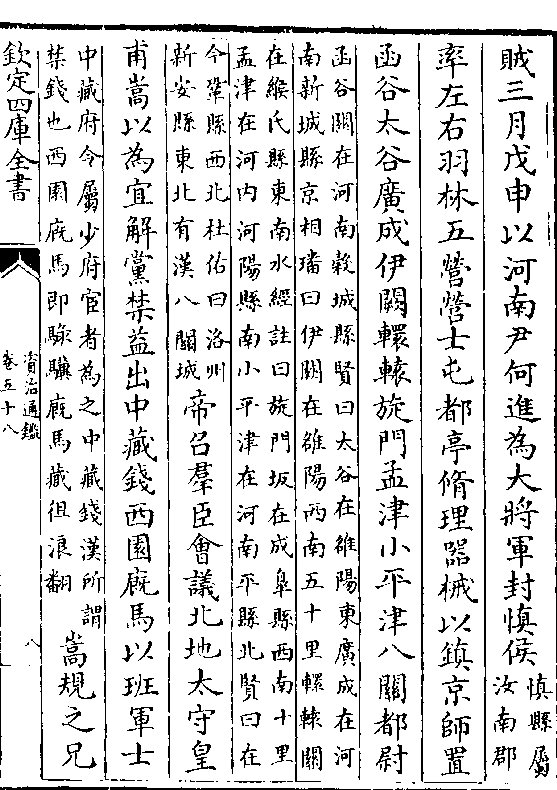 賊三月戊申以河南尹何進為大將軍封慎侯慎縣屬
汝南郡
率左右羽林五營營士屯都亭脩理器械以鎮京師置
函谷太谷廣成伊闕轘轅旋門孟津小平津八關都尉
函谷關在河南榖城縣賢曰太谷在雒陽東廣成在河
南新城縣京相璠曰伊闕在雒陽西南五十里轘轅關
在緱氏縣東南水經註曰旋門坂在成臯縣西南十里
孟津在河内河陽縣南小平津在河南平縣北賢曰在
今鞏縣西北杜佑曰洛州
新安縣東北有漢八關城
帝召羣臣會議北地太守皇
甫嵩以為宜解黨禁益出中藏錢西園廐馬以班軍士
中藏府令屬少府宦者為之中藏錢漢所謂
禁錢也西園廐馬即騄驥廐馬藏徂浪翻
嵩規之兄
欽定四庫全書
資治通鑑
卷五十八
八